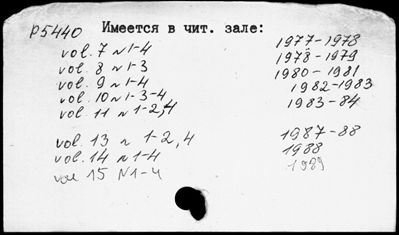 P5440 Имеется в чит. зале:
vol. 7 N 1-4 1977-1978
vol. 8 N 1-3 1978-1979
vol. 9 N 1-4 1980-1981
vol. 10 N 1-3-4 1982-1983
vol. 11 N 1-2,4 1983-84
vol. 13 N 1-2,4 1987-88
vol. 14 N 1-4 1988
vol 15 N 1-4 1989